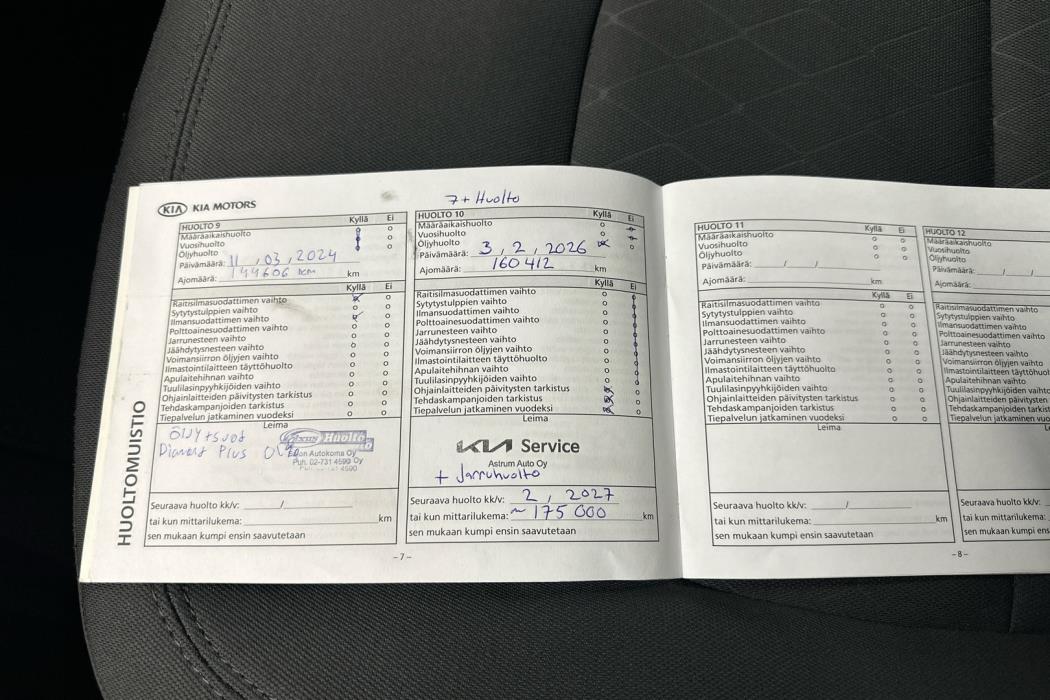 KIA MOTORS
HUOLTOMUISTIO
HUOLTO 9
Kyllä Ei
Määräaikaishuolto
Vuosihuolto
Öljyhuolto
Päivämäärä: 11 , 03 , 2024
Ajomäärä: 144606 km km
Kyllä Ei
Raitisilmasuodattimen vaihto
Sytytystulppien vaihto
Ilmansuodattimen vaihto
Polttoainesuodattimen vaihto
Jarrunesteen vaihto
Jäähdytysnesteen vaihto
Voimansiirron öljyjen vaihto
Ilmastointilaitteen täyttöhuolto
Apulaitehihnan vaihto
Tuulilasinpyyhkijöiden vaihto
Ohjainlaitteiden päivitysten tarkistus
Tehdaskampanjoiden tarkistus
Tiepalvelun jatkaminen vuodeksi
Leima
Öljy+suod
Plus
Huolto
Autokorna Oy
Puh. 02-731 4590
Seuraava huolto kk/v: /
tai kun mittarilukema: km
sen mukaan kumpi ensin saavutetaan
7+ Huolto
HUOLTO 10
Kyllä Ei
Määräaikaishuolto
Vuosihuolto
Öljyhuolto
Päivämäärä: 3 , 2 , 2026
Ajomäärä: 160412 km
Kyllä Ei
Raitisilmasuodattimen vaihto
Sytytystulppien vaihto
Ilmansuodattimen vaihto
Polttoainesuodattimen vaihto
Jarrunesteen vaihto
Jäähdytysnesteen vaihto
Voimansiirron öljyjen vaihto
Ilmastointilaitteen täyttöhuolto
Apulaitehihnan vaihto
Tuulilasinpyyhkijöiden vaihto
Ohjainlaitteiden päivitysten tarkistus
Tehdaskampanjoiden tarkistus
Tiepalvelun jatkaminen vuodeksi
Leima
KIA Service
Astrum Auto Oy
+ Jarruhuolto
Seuraava huolto kk/v: 2 , 2027
tai kun mittarilukema: ~ 175 000 km
sen mukaan kumpi ensin saavutetaan
-7-
HUOLTO 11
Kyllä Ei
Määräaikaishuolto
Vuosihuolto
Öljyhuolto
Päivämäärä: / /
Ajomäärä: km
Kyllä Ei
Raitisilmasuodattimen vaihto
Sytytystulppien vaihto
Ilmansuodattimen vaihto
Polttoainesuodattimen vaihto
Jarrunesteen vaihto
Jäähdytysnesteen vaihto
Voimansiirron öljyjen vaihto
Ilmastointilaitteen täyttöhuolto
Apulaitehihnan vaihto
Tuulilasinpyyhkijöiden vaihto
Ohjainlaitteiden päivitysten tarkistus
Tehdaskampanjoiden tarkistus
Tiepalvelun jatkaminen vuodeksi
Leima
Seuraava huolto kk/v: /
tai kun mittarilukema: km
sen mukaan kumpi ensin saavutetaan
-8-
HUOLTO 12
Määräaikaishuolto
Vuosihuolto
Öljyhuolto
Päivämäärä: / /
Ajomäärä:
Raitisilmasuodattimen vaihto
Sytytystulppien vaihto
Ilmansuodattimen vaihto
Polttoainesuodattimen vaihto
Jarrunesteen vaihto
Jäähdytysnesteen vaihto
Voimansiirron öljyjen vaihto
Ilmastointilaitteen täyttöhuol
Apulaitehihnan vaihto
Tuulilasinpyyhkijöiden vaihto
Ohjainlaitteiden päivitysten
Tehdaskampanjoiden tarkistus
Tiepalvelun jatkaminen vuo
Seuraava huolto kk/v:
tai kun mittarilukema:
sen mukaan kumpi ens